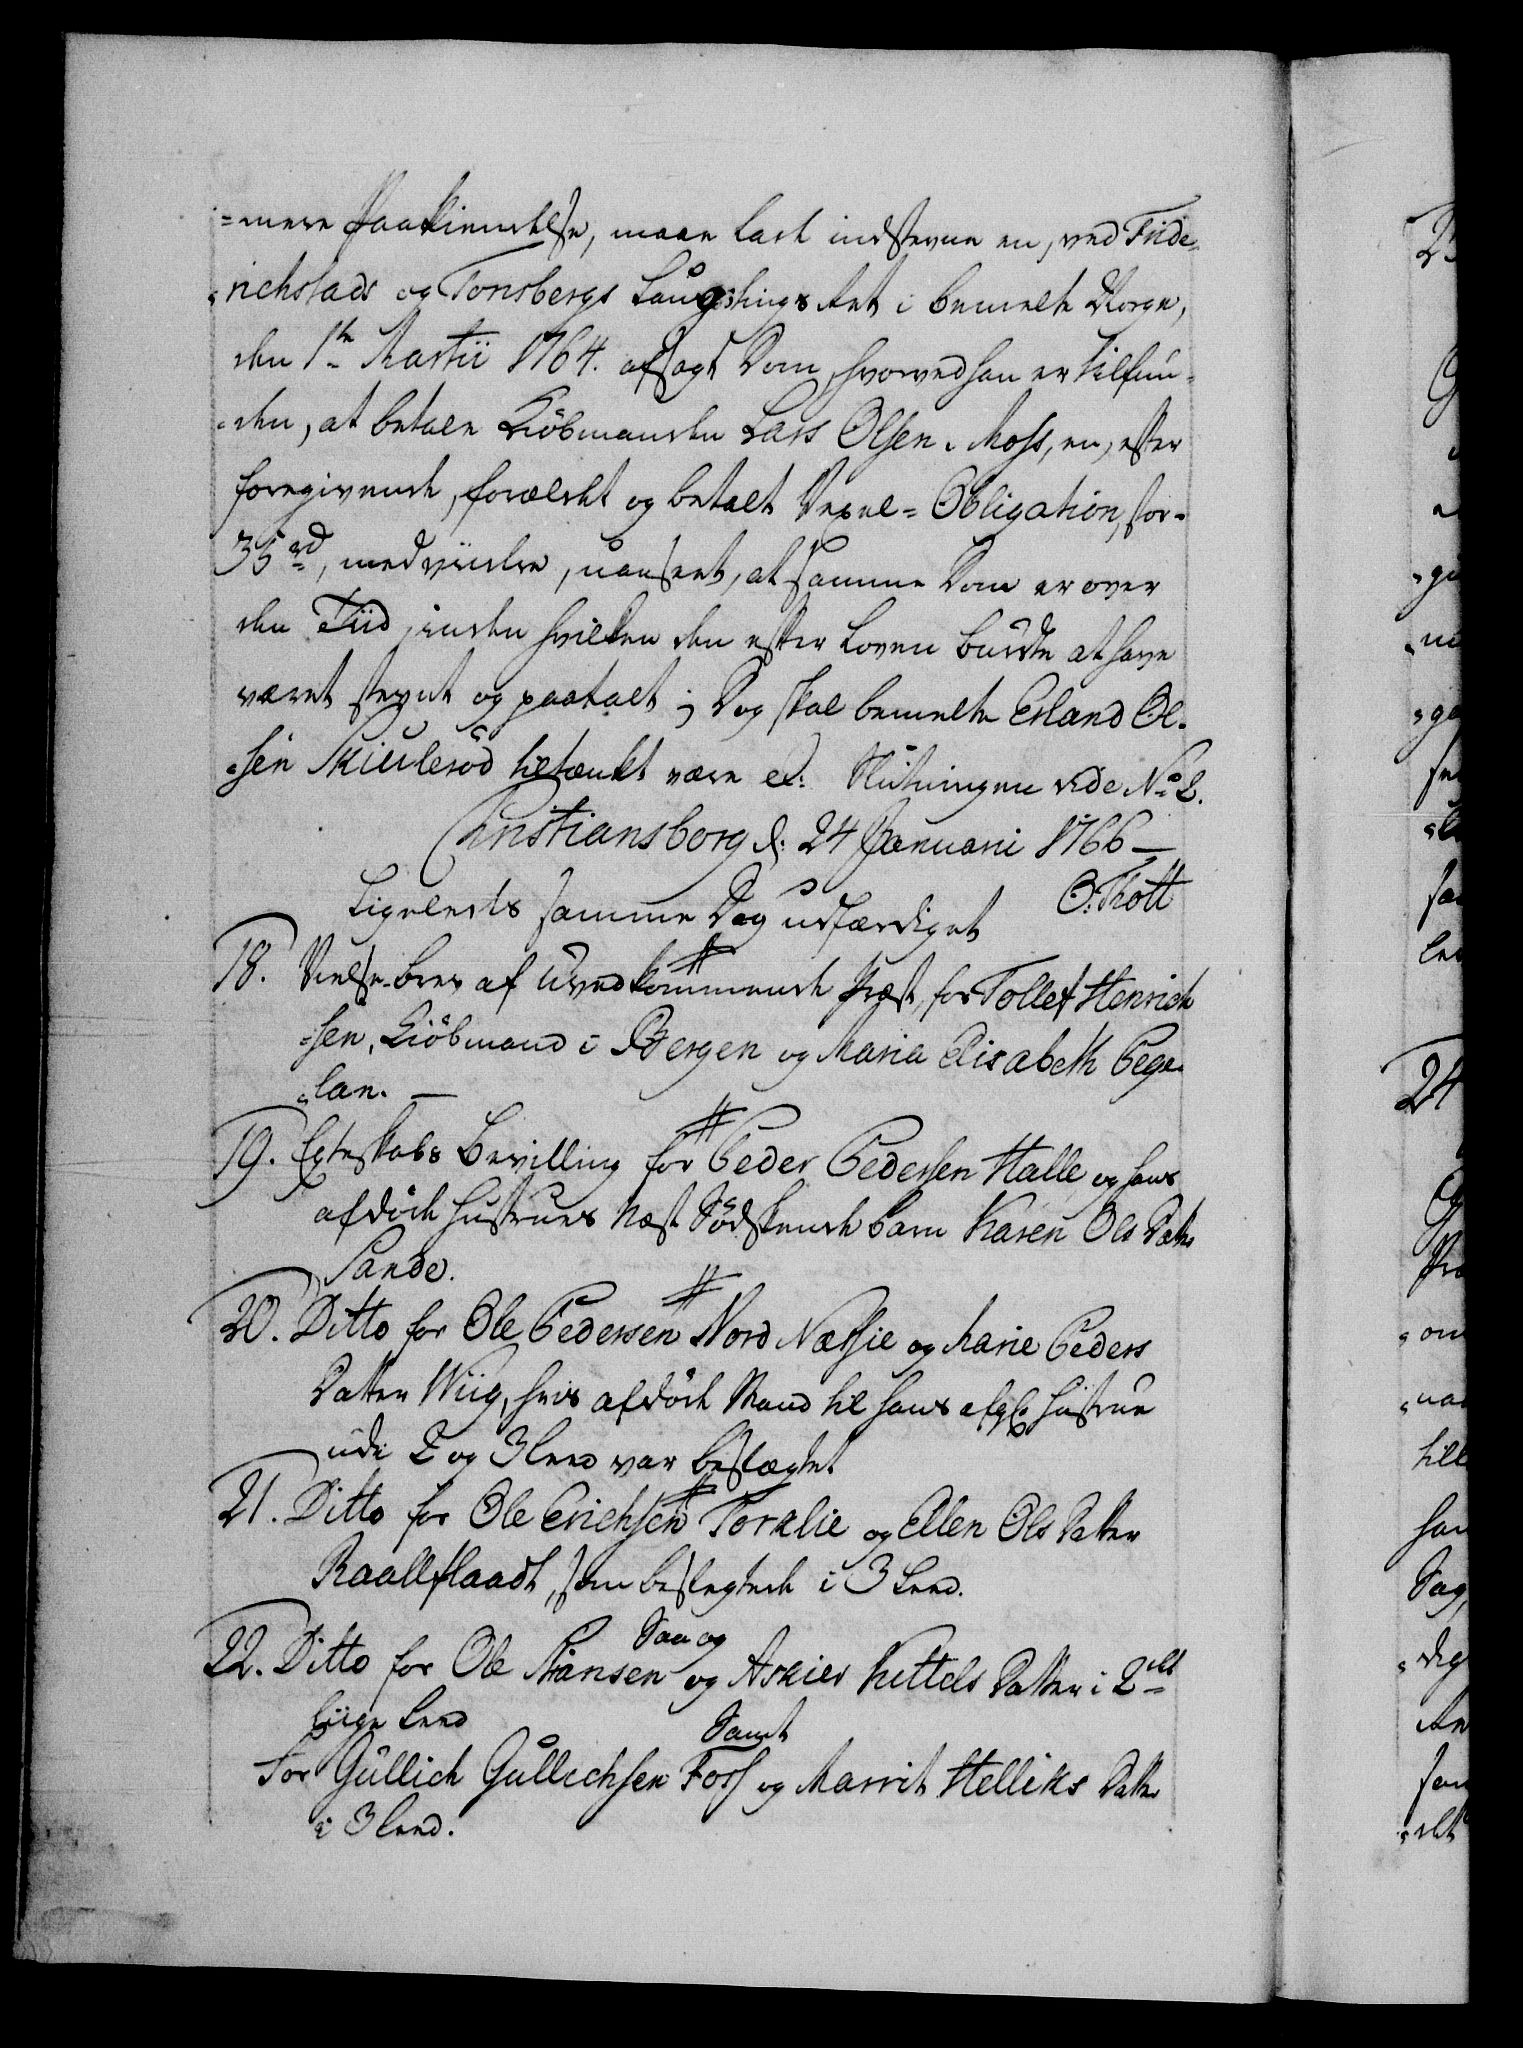 =mere Paakiendelse, maae lade indstevne en, ved Fride-
=richstads og Tonsbergs Laugthings Ret i bemelte Norge,
den 1te Martii 1764. afsagt Dom, hvorved han er tilfun-
=den, at betale Kiöbmanden Lars Olsen i Moss, en, efter
foregivende, forældet og betalt Vexel=Obligation, stor-
35 rd, med viidere, uanseet, at samme Dom er over
den Tiid, inden hvilken den efter Loven burdte at have
været stevnt og paatalt; Dog skal bemelte Erland Ol-
=sen Skiuleröd tiltænkt være etc: Slutningen vide No 2.
Christiansborg d: 24 Januarii 1766 —
O. Thott
Ligeledes samme Dag udfærdiget
18. Vielse-brev af uvedkommende Præst, for Tollef Henrich
=sen, Kiöbmand i Bergen og Maria Elisabeth Pege-
=lau. —
19. Egteskabs Bevilling for Peder Pedersen Halle, og hans
afdöde Hustrues Næst Södskende barn Karen Ols Datter
Sande.
20. Ditto for Ole Pedersen Nord Næssie og Marie Peders
Datter Wiig, hvis afdöde Mand til hans afgl: Hustrue
udi 2 og 3 Leed var beslægtet
21. Ditto for Ole Erichsen Toralie og Ellen Ols Datter
Raallflaadt, som beslegtede i 3 Leed.
Saa og
22. Ditto for Ole Hansen og Askier Kittels Datter i 2det
liige Leed
Samt
For Gullich Gullichsen Foss og Marrit Helliks Datter
i 3 Leed.